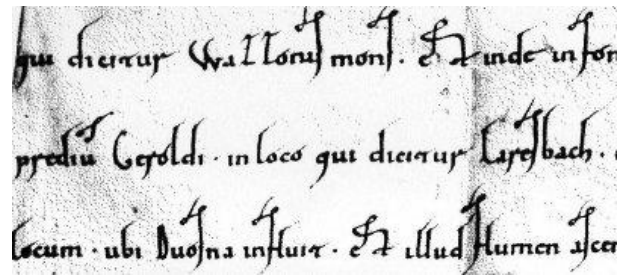 qui dicitur Wallonis mons. Et inde in fon
prediū Geroldi · in loco qui dicitur bach ·
locum · ubi influit · Et illud flumen ascen